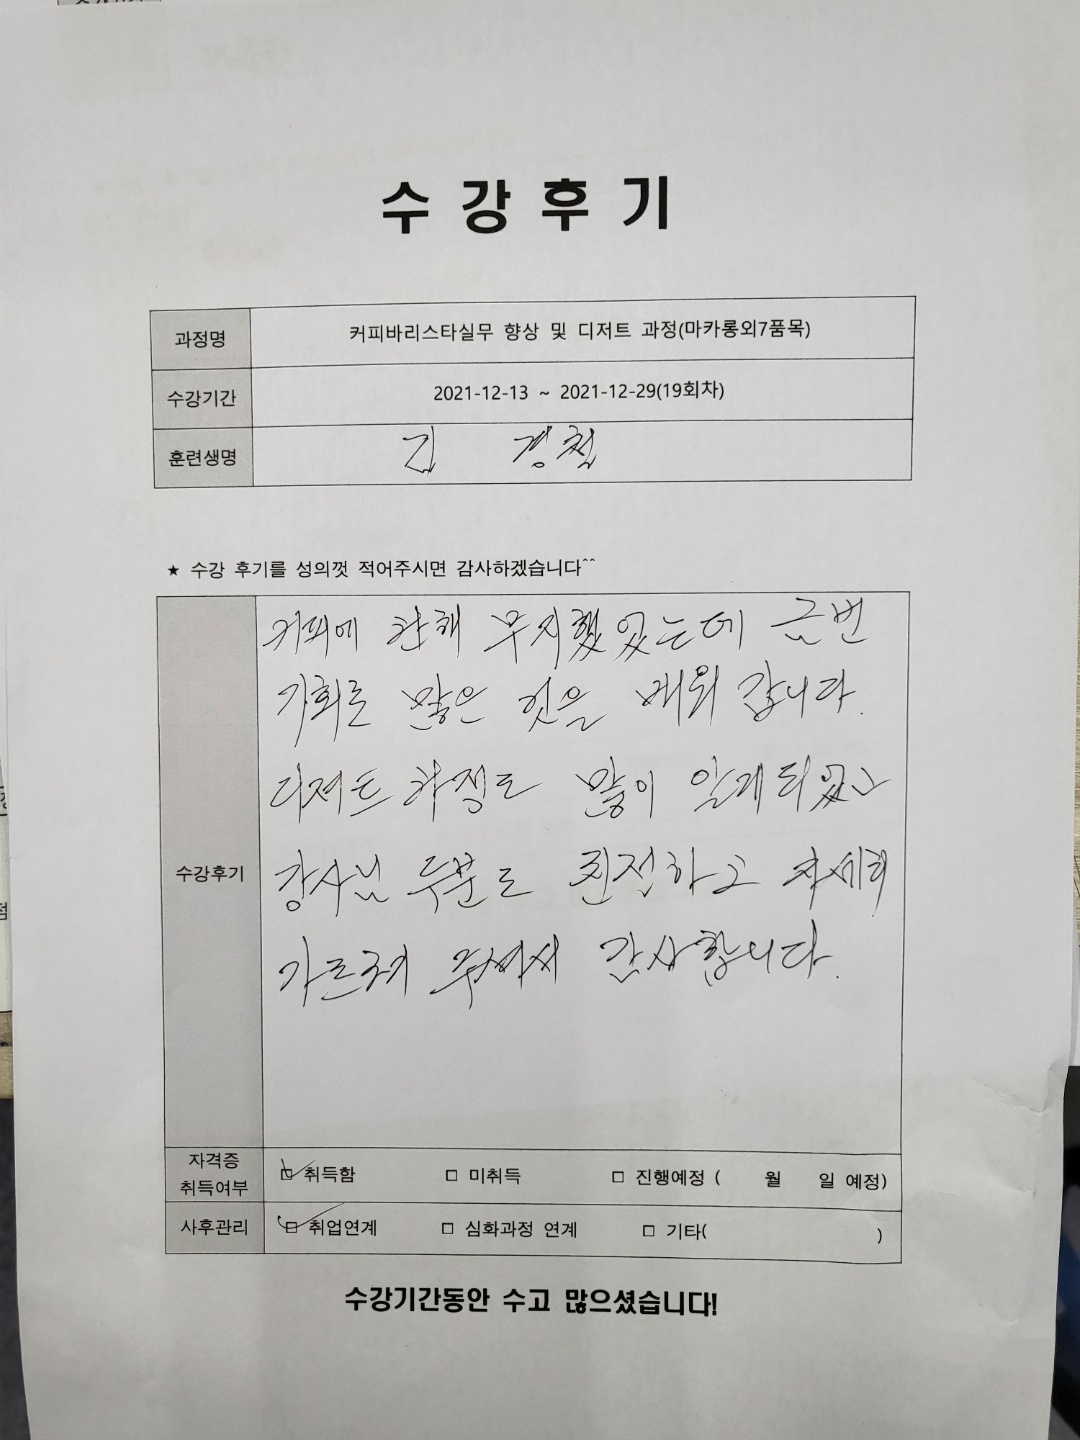 수강후기
과정명 커피바리스타실무 향상 및 디저트 과정(마카롱외7품목)
수강기간 2021-12-13 ~ 2021-12-29(19회차)
훈련생명 김 경철
★ 수강 후기를 성의껏 적어주시면 감사하겠습니다^^
수강후기
커피에 한해 무지했었는데 금번
기회로 많은 것을 배워 갑니다.
디저트 과정도 많이 알게되었고
강사님 두분도 친절하고 자세히
가르쳐 주셔서 감사합니다.
자격증 취득여부 □ 취득함 □ 미취득 □ 진행예정 ( 월 일 예정)
사후관리 □ 취업연계 □ 심화과정 연계 □ 기타( )
수강기간동안 수고 많으셨습니다!